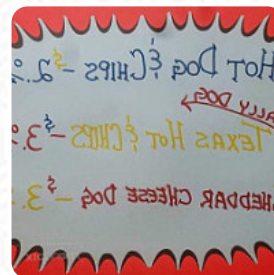 HOT DOG & CHIPS - $2.
ALLY DOG
TEXAS HOT & CHIPS - $3.
HEDDAR CHEESE DOG - $3.